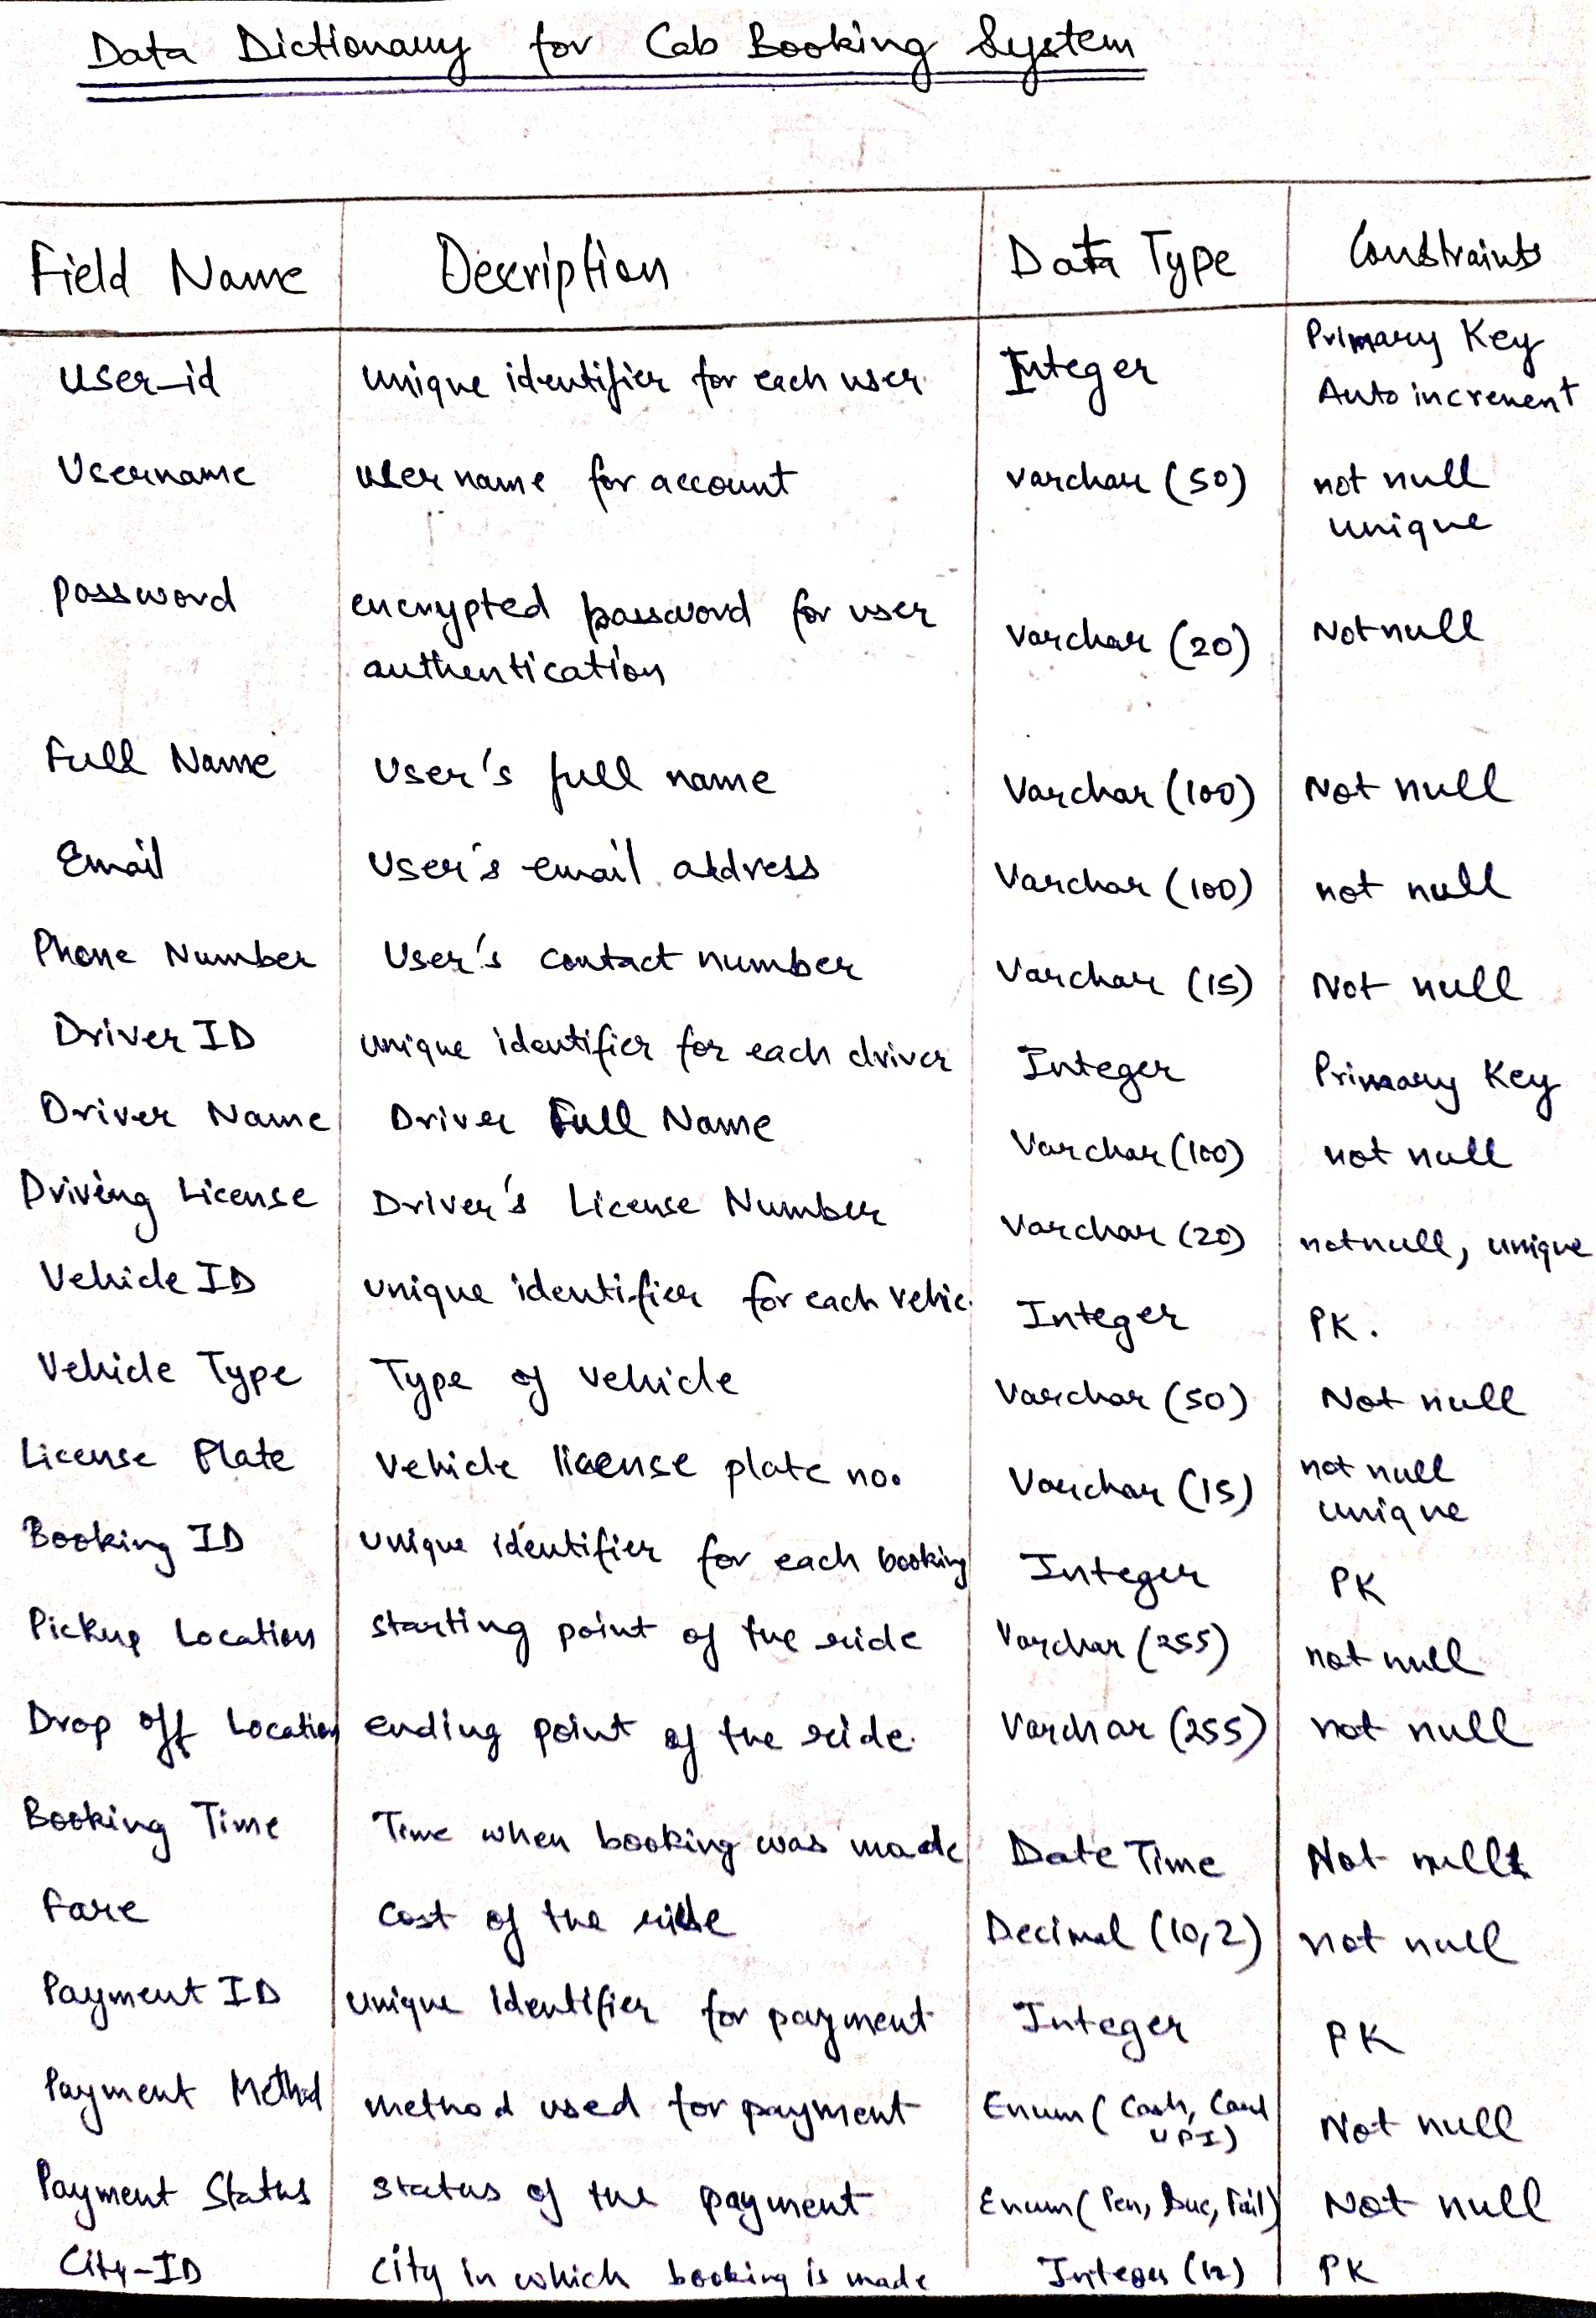 Data Dictionary for Cab Booking System
Field Name Description Data Type Constraints
User-id unique identifier for each user Integer Primary Key
Auto increment
Username user name for account varchar (50) not null
unique
password encrypted password for user varchar (20) Not null
authentication
Full Name User's full name Varchar (100) Not null
Email User's email address Varchar (100) not null
Phone Number User's contact number Varchar (15) Not null
Driver ID unique identifier for each driver Integer Primary Key
Driver Name Driver Full Name Varchar (100) not null
Driving License Driver's License Number Varchar (20) not null, unique
Vehicle ID unique identifier for each vehic. Integer PK.
Vehicle Type Type of vehicle Varchar (50) Not null
License Plate Vehicle license plate no. Varchar (15) not null
unique
Booking ID unique identifier for each booking Integer PK
Pickup Location starting point of the ride Varchar (255) not null
Drop off Location ending point of the ride. Varchar (255) not null
Booking Time Time when booking was made Date Time Not null
Fare Cost of the ride Decimal (10,2) not null
Payment ID unique identifier for payment Integer PK
Payment Method method used for payment Enum (Cash, Card Not null
UPI)
Payment Status status of the payment Enum (Pen, Suc, Fail) Not null
City-ID city in which booking is made Integer (12) PK